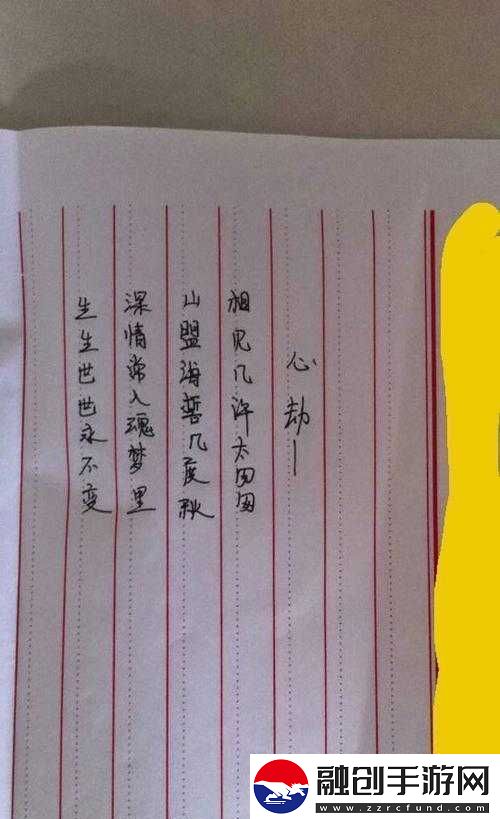 心劫—
相见几许太匆匆
山盟海誓几度秋
深情常入魂梦里
生生世世永不变
融创手游网
www.zzrcfund.com